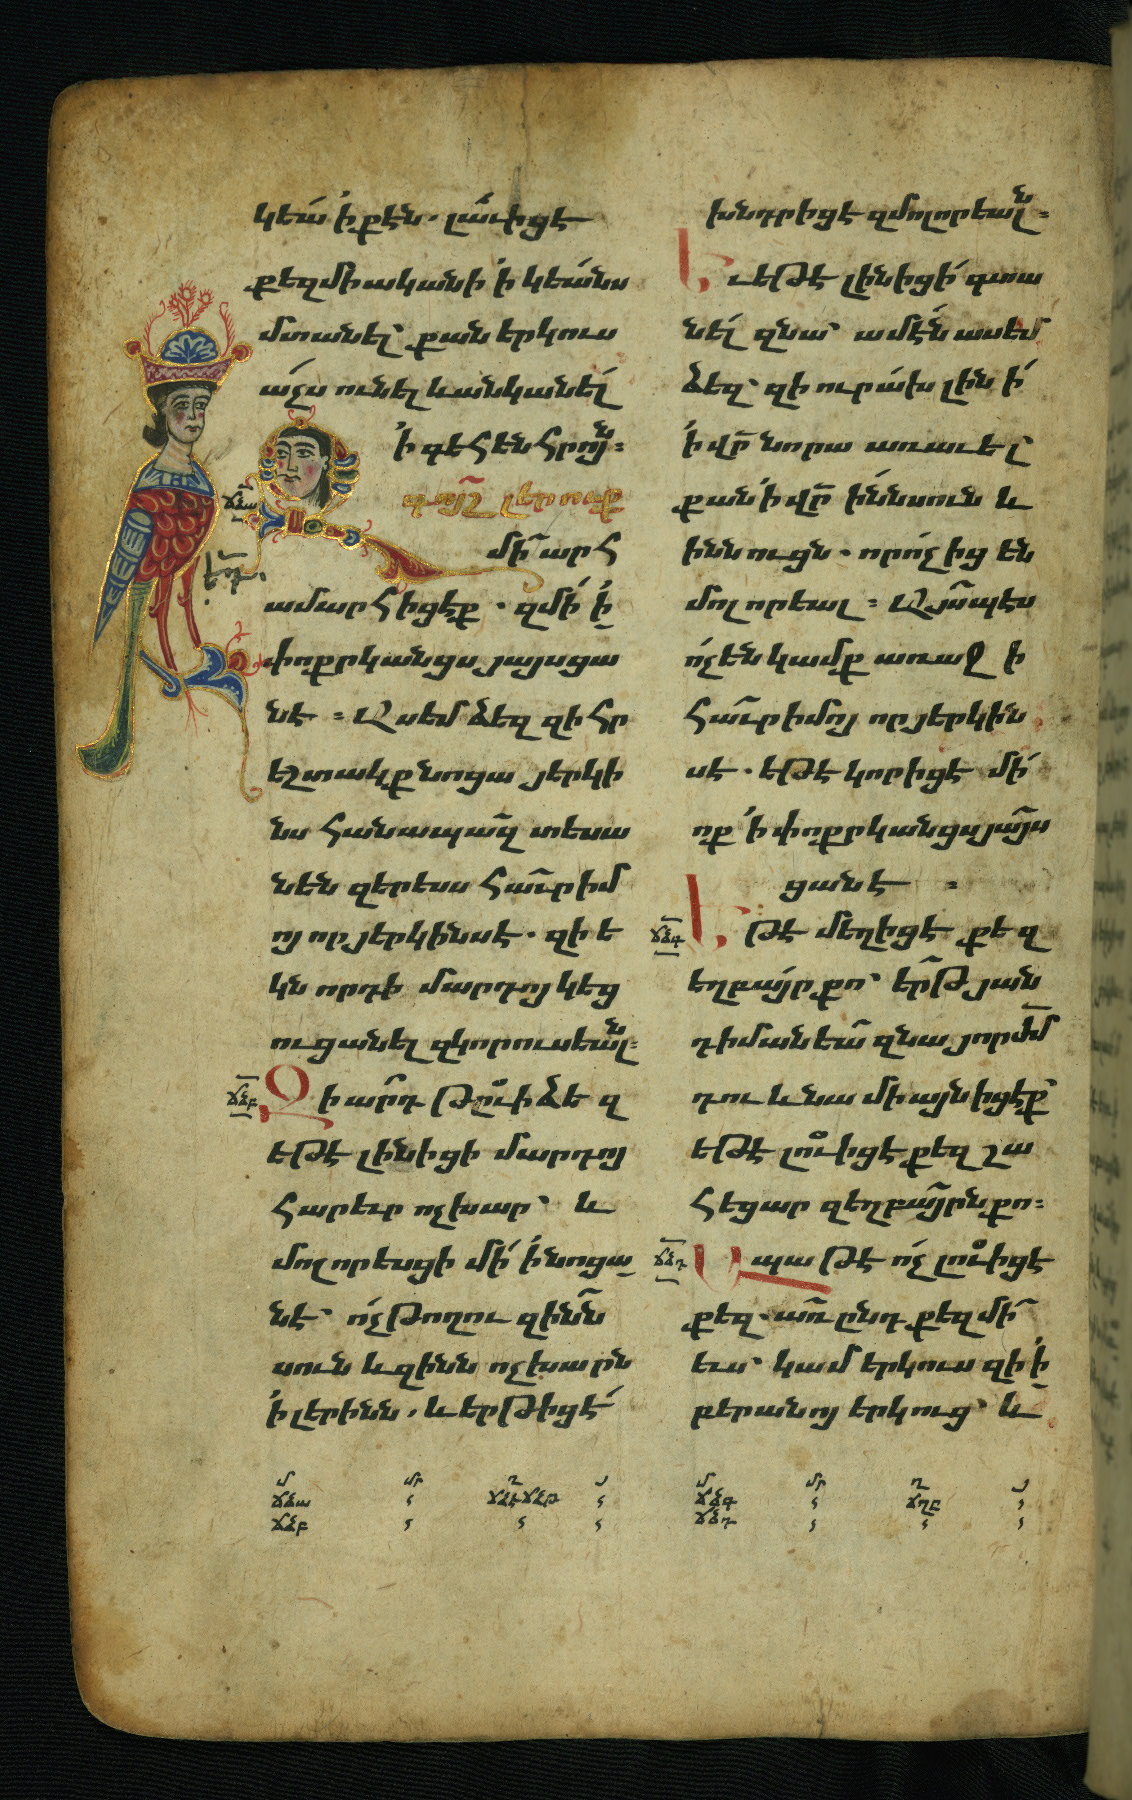 կեա՛ ի՛ քէն. լա՛ւիցէ
քեզ միականի՛ ի կեանս
մտանել՝ քան երկուս
ա՛չս ունել և անկանե՛լ
ի՛ գեհեն հրոյն։
զգոյշ լերուք
մի՛ արհ
ամարհիցէք. զմի՛ ի՛
փոքրկանցս յայսցա
նէ։ Ասեմ ձեզ զի հր
եշտակք նոցա յերկի
նս հանապազ տեսա
նեն զերեսս հաւր իմ
ոյ որ յերկինս է. զի ե
կն որդի մարդոյ կեց
ուցանել զկորուսեալն։
Զիարդ թուի ձեզ
եթէ լինիցի մարդոյ
հարեւր ոչխար՝ և
մոլորեսցի մի՛ ի՛ նոցա
նէ՝ ո՛չ թողու զինն
սուն և զինն ոչխարն
ի՛ լերինն. և երթիցէ՛
խնդրիցէ զմոլորեալն։
Եւ եթէ լինիցի՛ գտա
նե՛լ զնա՝ ամէն ասեմ
ձեզ՝ զի ուրա՛խ լինի՛
ի՛ վր նորա առաւել
քան ի՛ վր իննսուն և
իննուցն. որո՛չ իցեն
մոլորեալ։ Այսպէս
ո՛չ են կամք առաջի
հաւր իմոյ որ յերկին
ս է. եթէ կորիցէ մի՛
ոք ի՛ փոքրկանցս յայս
ցանէ։
Եթէ մեղիցէ քեզ
եղբայր քո՝ երթ յան
դիմանեա զնա յորժմ
դու և նա միայն իցէք՝
եթէ լուիցէ քեզ շա
հեցար զեղբայրն քո։
Ապա թէ ո՛չ լուիցէ
քեզ. առ ընդ քեզ մի՛
եւս՝ կամ երկուս զի ի՛
բերանոյ երկուց՝ և
մ մր ղ յ
ճձա
ճձբ
մ մր ղ յ
ճձգ ճղբ
ճձդ